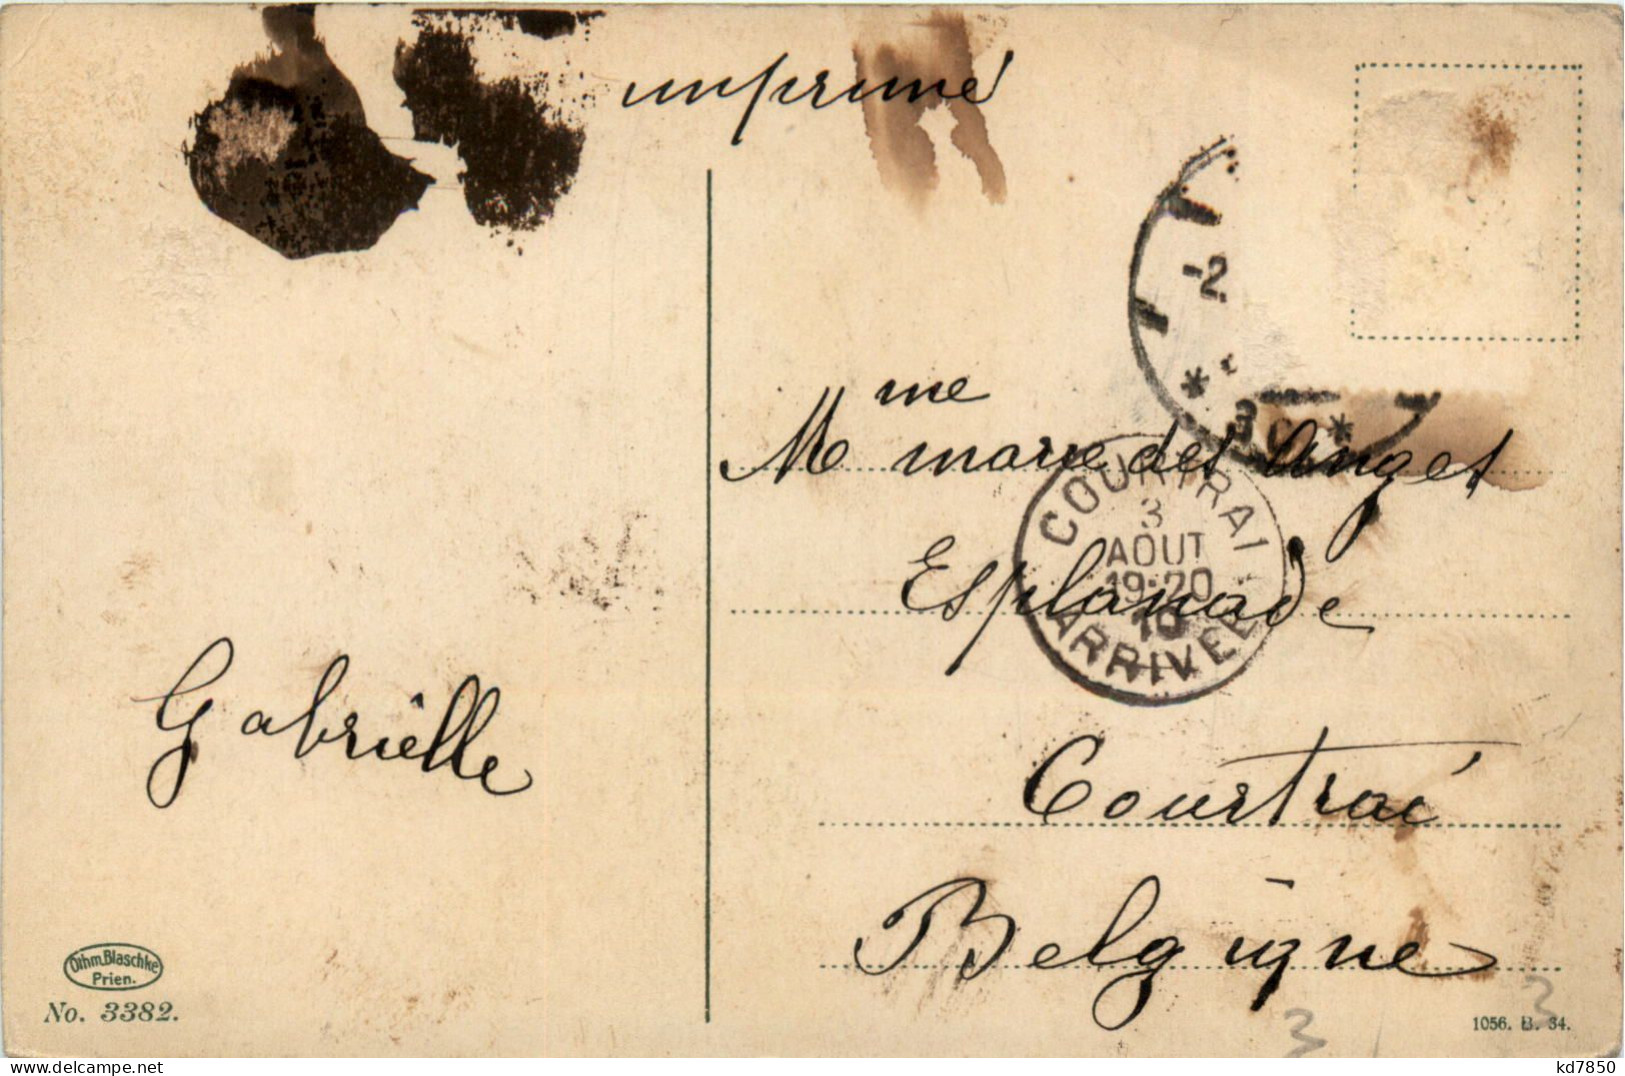 imprimé
-2.
Mme marie des Anges
COURTRAI
3
AOUT
19-20
10
ARRIVEE
Esplanade
Gabriëlle
Courtrai
Belgique
Othm. Blaschke
Prien.
No. 3382.
1056. B. 34.
3
3
kd7850